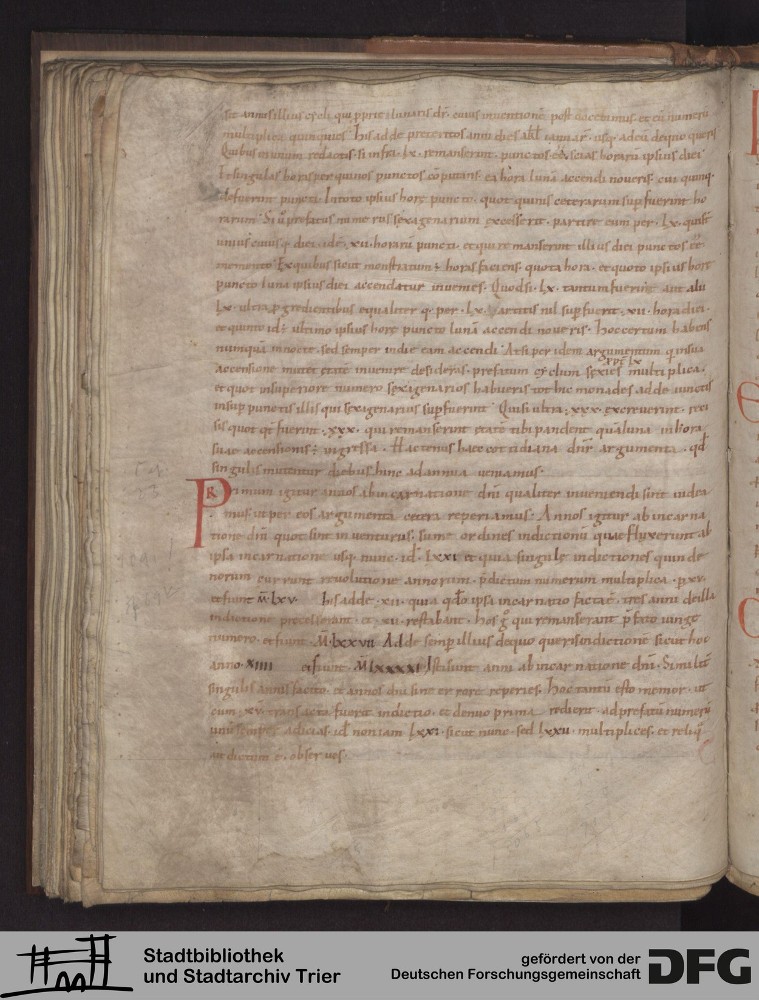 sit annus illius cycli qui ꝓprie lunaris dr̄. cuius inventionē post docebimus. et eū numerū
multiplica quinquies. his adde preteritos anni dies a kl̄ ianuar. usq; ad eū de quo queris
Quibus in unum redactis. si infra. lx. remanserint. punctos eē scias horarū ipsius diei
Et singulas horas per quinos punctos cōputans. ea hora lunā accendi noveris. cui quinq.
defuerint puncti. In toto ipsius horę puncto. quot quinis ceterarum supfuerint ho
rarum. Si ū prefatus numerus sexagenarium excesserit. partire eum per. lx.
unius cuiusq; diei. idē. xii. horarū puncti. et qui remanserint illius diei punctos eē
memento. Ex quibus sicut monstratum ē horas faciens. quota hora. et quoto ipsius horę
puncto luna ipsius diei accendatur invenies. Quodsi. lx. tantum fuerint aut
lx. ultra ꝓgredientibus equaliter q. per. lx. partitis nil supfuerit. xii. hora diei.
et quinto id ē ultimo ipsius horę puncto lunā accendi noveris. Hoc certum habens
numquā in nocte. sed semper in die eam accendi. At si per idem argumentum
accensione etatē invenire desideras. prefatum cyclum sexies multiplica.
et quot in superiore numero sexagenarios habueris tot hic monades adde iunctis
insup punctis illis qui sexagenarius supfuerint. Qui si ultra. xxx. excreverint. rei
sis quot qt fuerint. xxx. qui remanserint etatē tibi pandent qua luna in hora
suae accensionis ē ingressa. Hactenus haec cottidiana dnr̄ argumenta. qd̄
singulis mutentur diebus hinc ad annua veniamus.
PRimum igitur annos ab incarnatione dn̄i qualiter inveniendi sint indea
mus ut per eos argumenta cetera reperiamus. Annos igitur ab incarna
tione dn̄i quot sint inventurus. sume ordines indictionū quae fluxerunt ab
ipsa incarnatione usq; nunc. id. lxxi. et quia singulę indictiones quinde
norum currunt revolutione annorum. p̄dictum numerum multiplica. p xv.
et fiunt m̄. lxv. his adde. xii. quia qdo ipsa incarnatio facta ē. tres anni de illa
indictione precesserant. et. xii. restabant. hos g̊ qui remanserant p̄fato iunge
numero. et fiunt. M̄. lxxvii. Adde semp illius de quo queris indictione sicut hoc
anno. xiiii et fiunt. M̄ lxxxxi. Isti sunt anni ab incarnatione dn̄i. Similit̄
singulis annis facito. et annos dn̄i sine errore reperies. Hoc tantū esto memor. ut
cum. xv. transacta fuerit indictio. et denuo prima redierit. ad prefatū numerū
unū semper adicias. id non iam lxxi. sicut nunc. sed lxxii. multiplices. et reliq̄
ut dictum ē. observes.
Stadtbibliothek
und Stadtarchiv Trier
gefördert von der
Deutschen Forschungsgemeinschaft
DFG